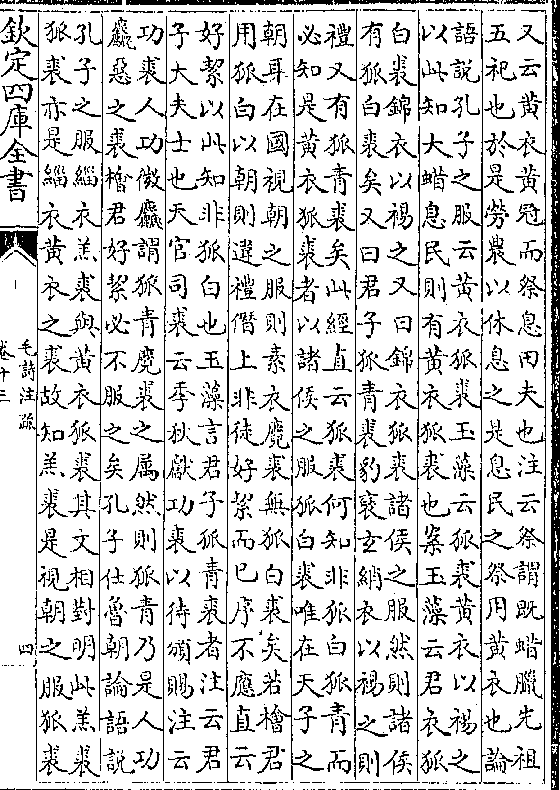 又云黄衣黄冠而祭息田夫也注云祭謂既蜡臘先祖
五祀也於是勞農以休息之是息民之祭用黄衣也論
語說孔子之服云黄衣狐裘玉藻云狐裘黄衣以裼之
以此知大蜡息民則有黄衣狐裘也案玉藻云君衣狐
白裘錦衣以裼之又曰錦衣狐裘諸侯之服然則諸侯
有狐白裘矣又曰君子狐青裘豹褎玄綃衣以裼之則
禮又有狐青裘矣此經直云狐裘何知非狐白狐青而
必知是黄衣狐裘者以諸侯之服狐白裘唯在天子之
朝耳在國視朝之服則素衣麑裘無狐白裘矣若檜君
用狐白以朝則違禮僭上非徒好絜而已序不應直云
好絜以此知非狐白也玉藻言君子狐青裘者注云君
子大夫士也天官司裘云季秋獻功裘以待頒賜注云
功裘人功微麤謂狐青麑裘之属然則狐青乃是人功
麤惡之裘檜君好絜必不服之矣孔子仕魯朝論語說
孔子之服緇衣羔裘與黄衣狐裘其文相對明此羔裘
狐裘亦是緇衣黄衣之裘故知羔裘是視朝之服狐裘
欽定四庫全書
毛詩注疏
卷十三
四